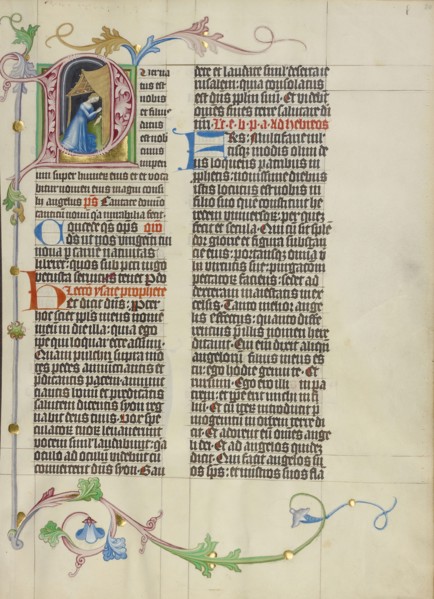 Puer na
tus est
nobis
et filius
datus
est no
bis cuius
imperi
um super humerum eius et et voca
bitur nomen eius magni consi
lii angelus ps Cantate domino
canticum novum qa mirabilia fecit
Concede qs ops oro
ds ut nos unigeniti tui
nova p carnē nativitas
liberet: quos sub peccati iugo
vetusta servitus tenet P do
Lectio ysaie prophete
Hec dicit dn̄s: Propter
hoc sciet ppls meus nomē
meū in die illa: quia ego
ipse qui loquebar ecce assum
Quam pulcri supra mō
tes pedes annunciantis et
p̄dicantis pacem: annun
ciantis bonū et predicātis
salutem: dicentis syon reg
nabit deus tuus Vox spe
culatorū tuorū levaverunt
vocem simul laudabunt: qa
oculo ad oculū videbūt cū
converterit dn̄s syon Gau
dete et laudate simul deserta ie
rusalem: quia consolatus
est dn̄s pplm suū Et videbūt
omnes fines terre salutare di
nr̄i Lc e b p a Ad hebreos
Frs: multifarie mul
tisque modis olim de
us loquens patribus in
prophetis: novissime diebus
istis locutus est nobis in
filio suo quē constituit he
redem universorum: per quē
fecit et secula Qui cū sit splē
dor glorie et figura substan
cie eius: portansque omnia v̄
bo virtutis sue: purgacōem
peccatorū faciens: sedet ad
dexteram maiestatis in ex
celsis Tanto melior ange
lis effectus: quanto diffe
rencius p̄ illis nomen here
ditavit Cui em̄ dixit aliqn̄
angelorum filius meus es
tu: ego hodie genui te Et
rursum Ego ero illi in pa
trem: et ipse erit michi in fi
liū Et cū iterū introducit p̄
mogenitū in orbem terre di
cit Et adorent eū omnes ange
li dei Et ad angelos quidē
dicit Qui facit angelos su
os sps: et ministros suos fla